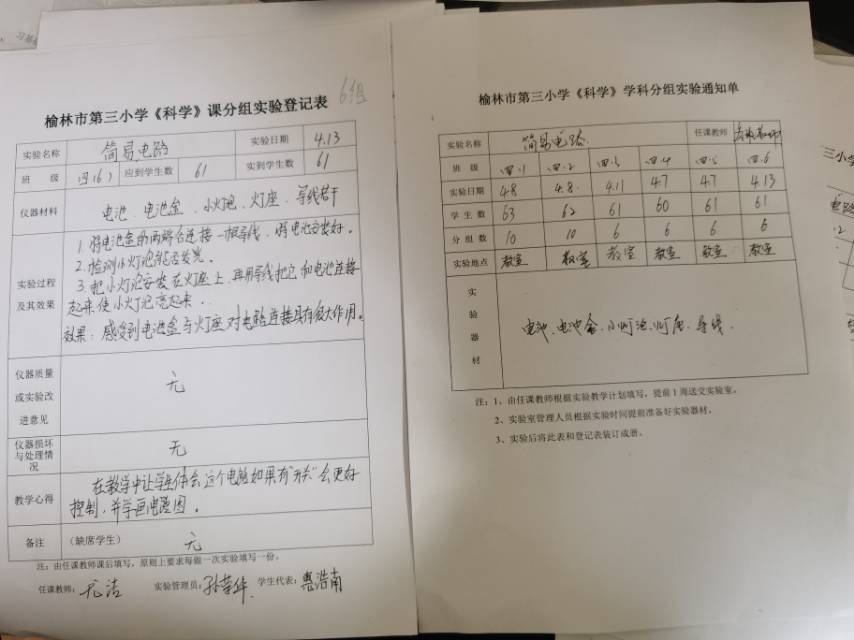 榆林市第三小学《科学》课分组实验登记表
6组
实验名称 简易电路 实验日期 4.13
班 级 四(6) 应到学生数 61 实到学生数 61
仪器材料 电池、电池盒、小灯泡、灯座、导线若干
实验过程及其效果
1. 将电池盒的两端各连接一根导线,将电池安装好。
2. 检测小灯泡能否发光。
3. 把小灯泡安装在灯座上,再用导线把它和电池连接
起来,使小灯泡亮起来。
效果:感受到电池盒与灯座对电路连接具有很大作用。
仪器质量或实验改进意见 无
仪器损坏与处理情况 无
教学心得 在教学中让学生体会这个电路如果有“开关”会更好
控制,并学画电路图。
备注 (缺席学生) 无
注:由任课教师课后填写,原则上要求每做一次实验填写一份。
任课教师:尤洁 实验管理员:孙荣华 学生代表:惠浩南
榆林市第三小学《科学》学科分组实验通知单
实验名称 简易电路 任课教师
班 级 四.1 四.2 四.3 四.4 四.5 四.6
实验日期 4.8 4.8. 4.11 4.7 4.7 4.13
学 生 数 63 62 61 60 61 61
分 组 数 10 10 6 6 6 6
实验地点 教室 教室 教室 教室 教室 教室
实验器材 电池、电池盒、小灯泡、灯座、导线.
注:1、由任课教师根据实验教学计划填写,提前1周送交实验室。
2、实验室管理人员根据实验时间提前准备好实验器材。
3、实验后将此表和登记表装订成册。